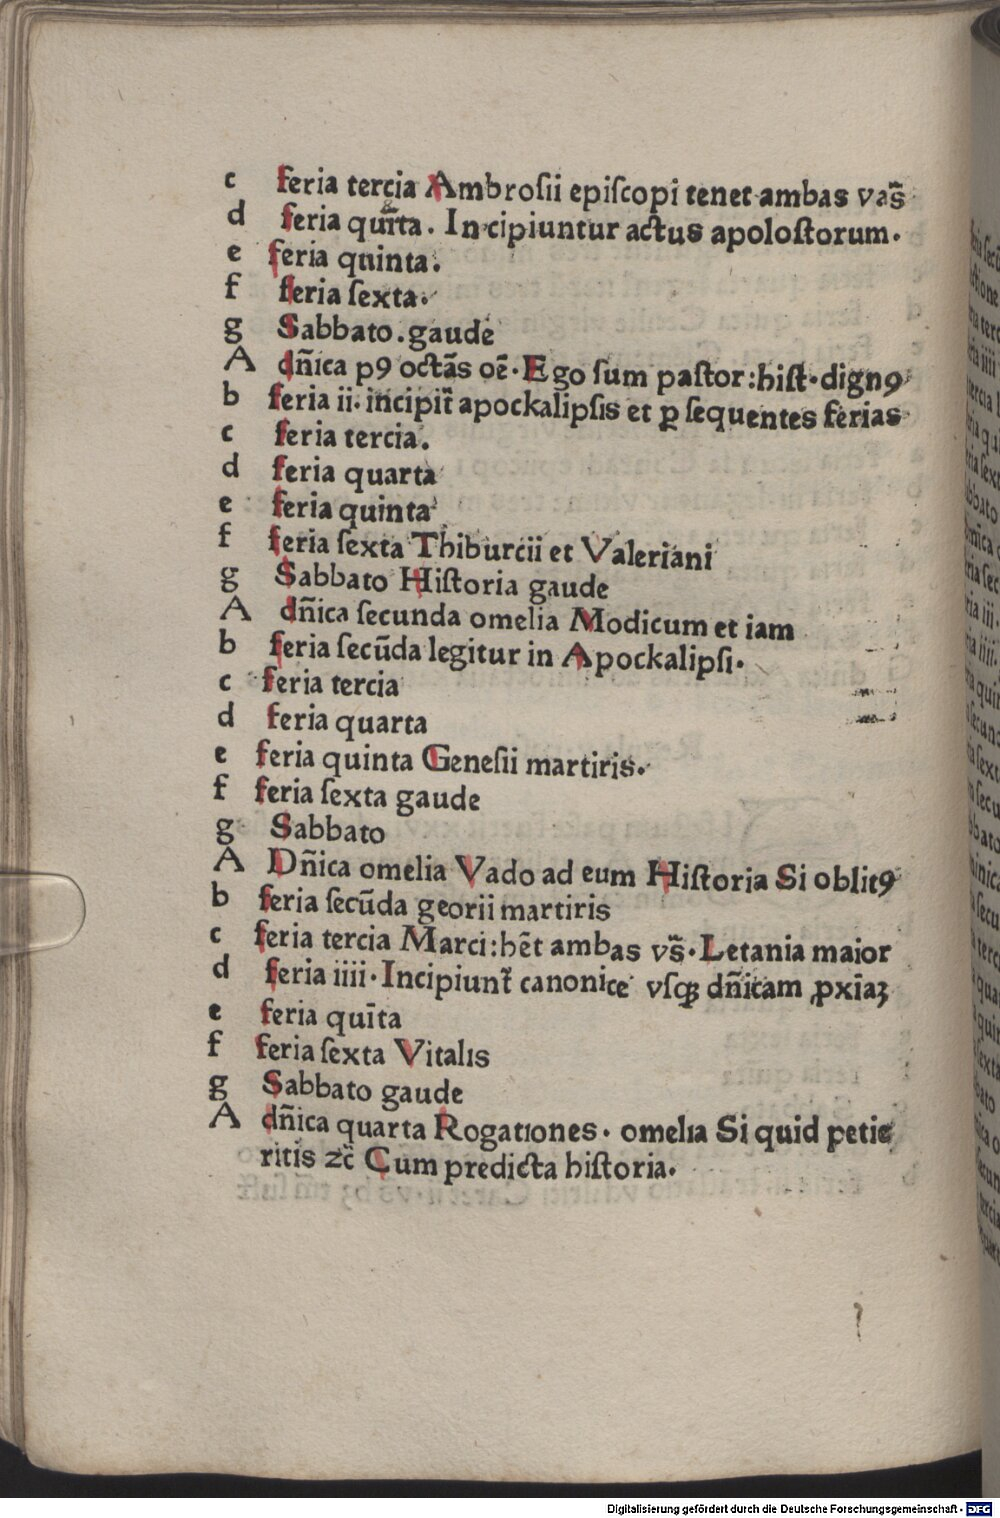 c feria tercia Ambrosii episcopi tenet ambas vas̄
d feria quīta. In cipiuntur actus apolostorum.
e feria quinta.
f feria sexta.
g Sabbato. gaude
A dn̄ica p9 octās oē. Ego sum pastor: hist. dign9
b feria ii. incipit̄ apockalipsis et ꝑ sequentes ferias
c feria tercia.
d feria quarta
e feria quinta
f feria sexta Thiburcii et Valeriani
g Sabbato Historia gaude
A dn̄ica secunda omelia Modicum et iam
b feria secūda legitur in Apockalipsi.
c feria tercia
d feria quarta
e feria quinta Genesii martiris.
f feria sexta gaude
g Sabbato
A Dn̄ica omelia Vado ad eum Historia Si oblit9
b feria secūda georii martiris
c feria tercia Marci: hēt ambas vs̄. Letania maior
d feria iiii. Incipiunt̄ canonice vsqꝫ dn̄icam ꝓxīaꝫ
e feria quīta
f feria sexta Vitalis
g Sabbato gaude
A dn̄ica quarta Rogationes. omelia Si quid petie
ritis ⁊c̄ Cum predicta historia.
Digitalisierung gefördert durch die Deutsche Forschungsgemeinschaft - DFG